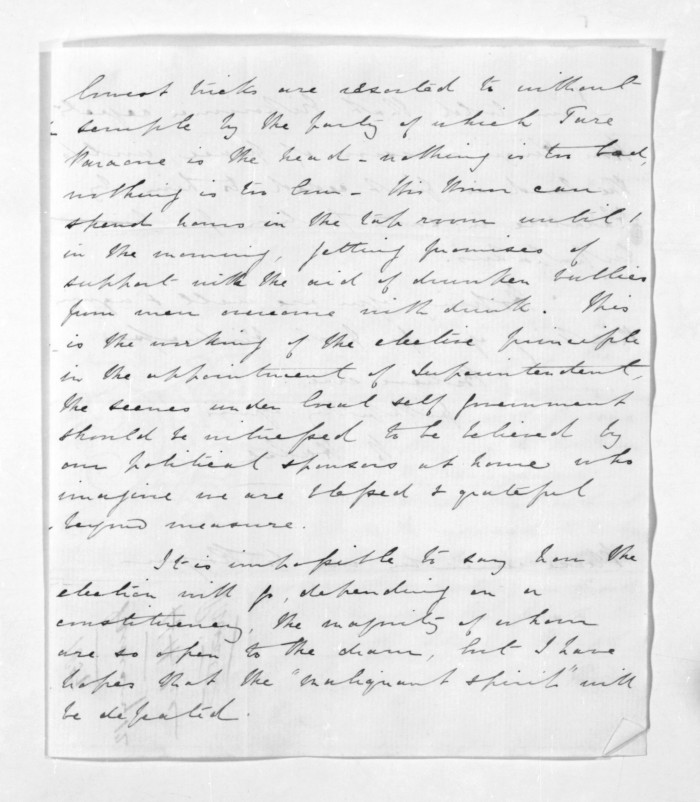 lowest tricks are resorted to without
scruple by the party of which Tare
is the head - nothing is too bad,
nothing is too low - His Honor can
spend hours in the tap room until 1
in the morning, getting promises of
support with the aid of drunken bullies
from men overcome with drink. This
is the working of the elective principle
in the appointment of Superintendent,
the scenes under local self government
should be witnessed to be believed by
our political sponsors at home who
imagine we are blessed & grateful
beyond measure.
It is impossible to say how the
election will go, depending on a
constituency, the majority of whom
are so open to the dram, but I have
hopes that the "malignant spirit" will
be defeated.